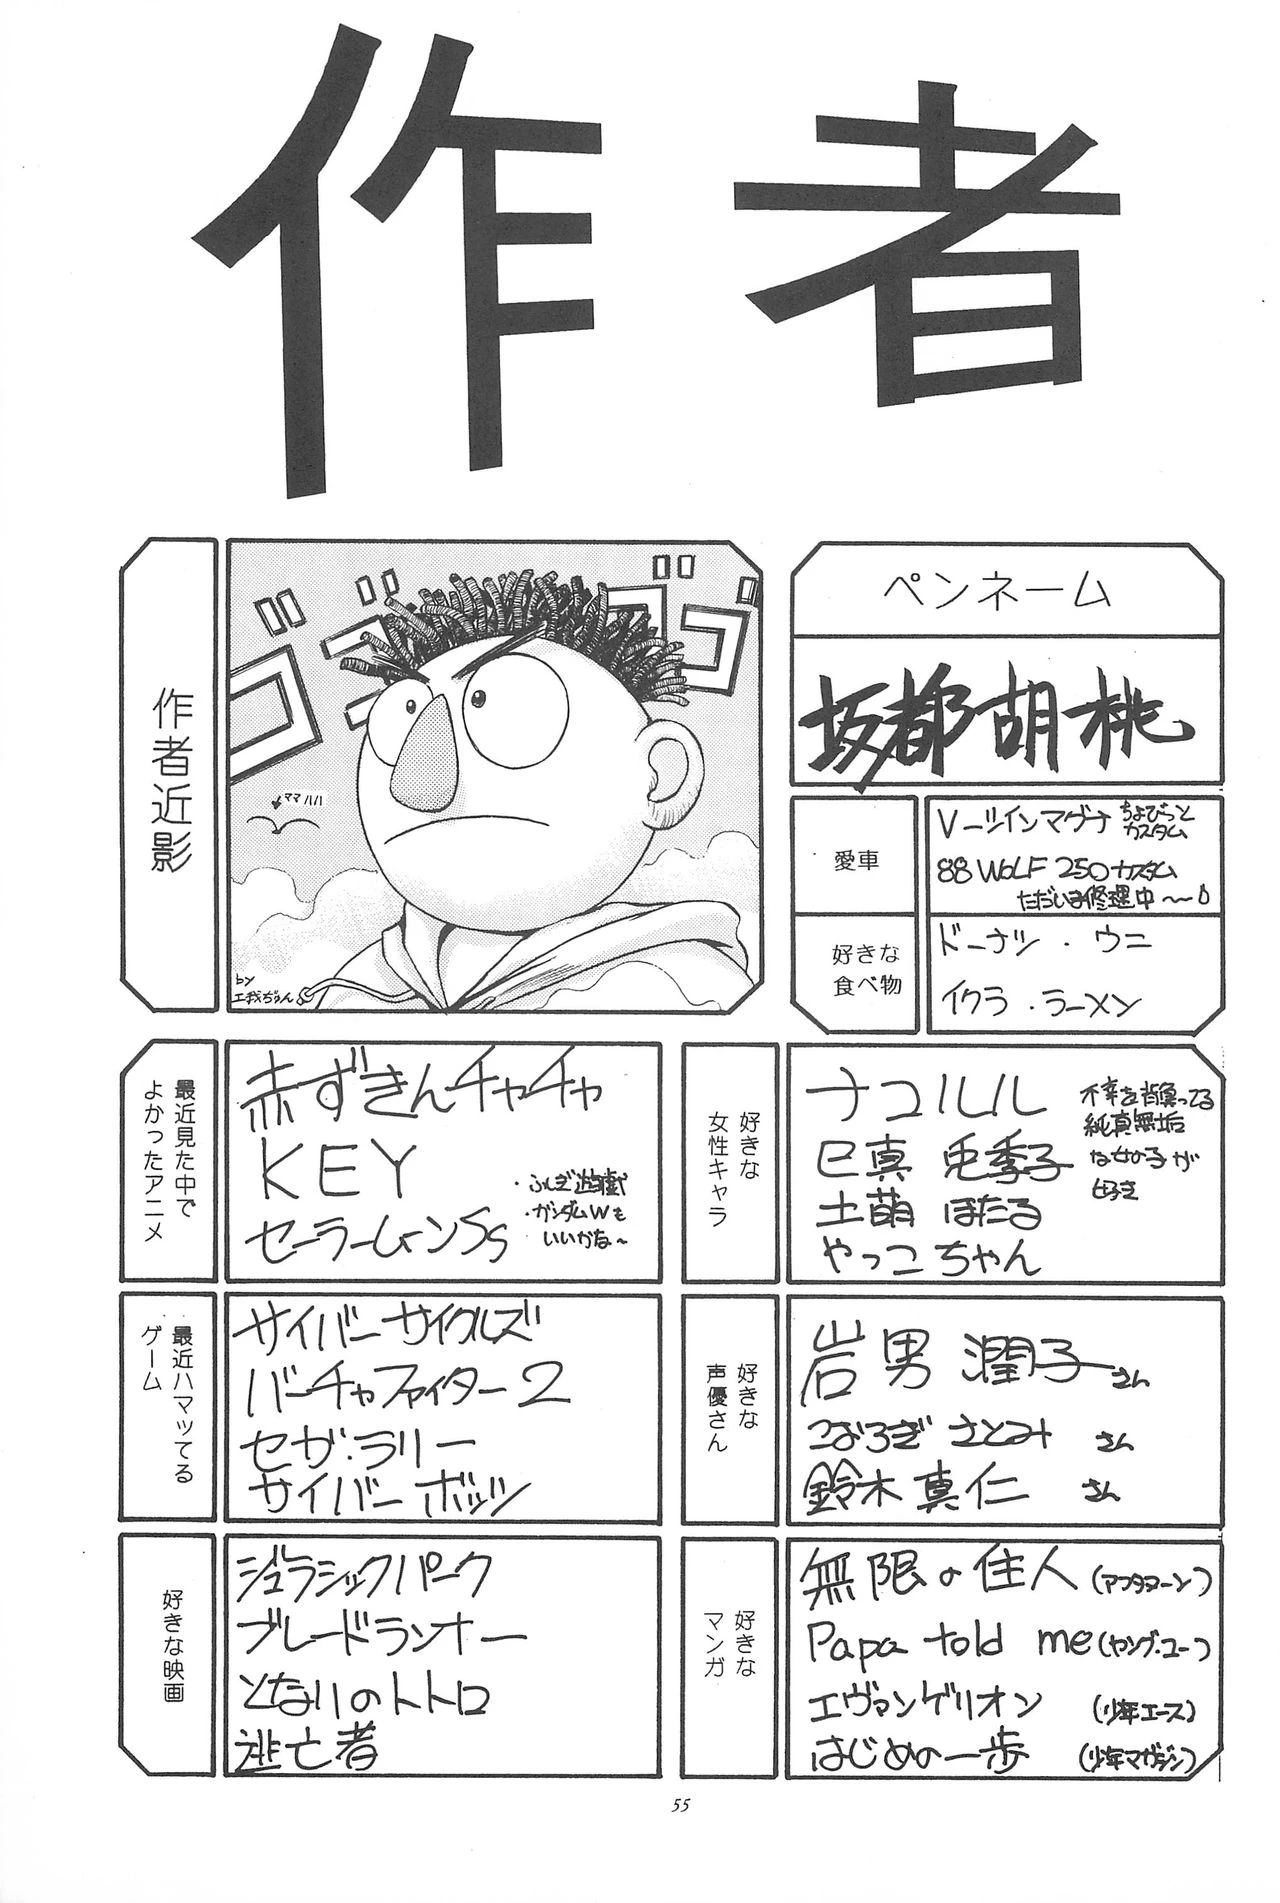 作者
作者近影
ゴゴゴゴ
ママハハ
by
工我ぢゅん
ペンネーム
坂都胡桃
愛車
Vーツインマグナ ちょびっと
カスタム
88 WOLF 250カスタム
ただいま修理中〜〜
好きな
食べ物
ドーナツ・ウニ
イクラ・ラーメン
最近見た中で
よかったアニメ
赤ずきんチャチャ
KEY
セーラームーンSs
・ふしぎ遊戯
・ガンダムWも
いいかな〜
好きな
女性キャラ
ナコルル
巳真 兎季子
土萌 ほたる
やっこちゃん
不幸を背負ってる
純真無垢
な女の子が
好き
最近ハマッてる
ゲーム
サイバーサイクルズ
バーチャファイター2
セガ・ラリー
サイバーボッツ
好きな
声優さん
岩男潤子さん
こおろぎさとみ さん
鈴木真仁 さん
好きな映画
ジュラシックパーク
ブレードランナー
となりのトトロ
逃亡者
好きな
マンガ
無限の住人(アフタヌーン)
Papa told me(ヤング・ユー)
エヴァンゲリオン (少年エース)
はじめの一歩 (少年マガジン)
55